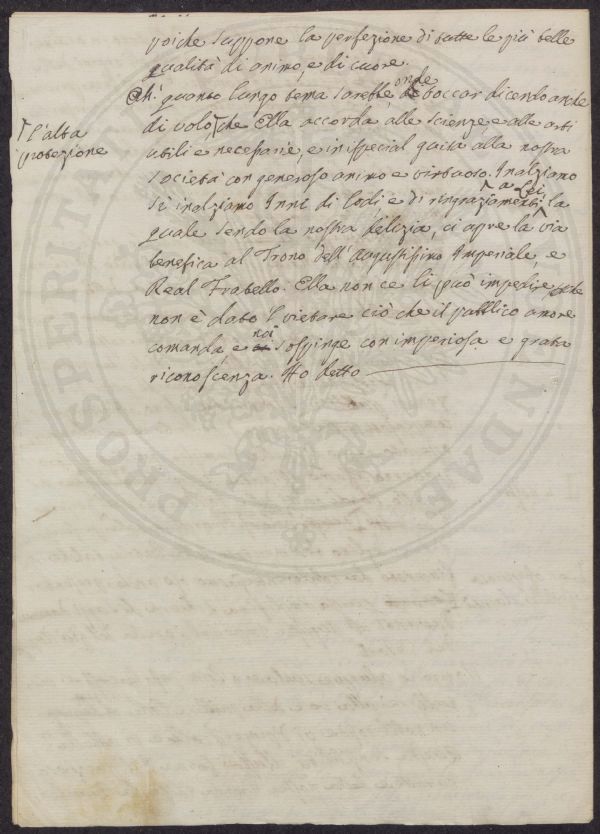 poiche suppone la perfezione di tutte le più belle
qualità di animo, e di cuore.
Oh! quanto lungo tema sarebbe onde toccar dicendo anche
l'alta
protezione
di volo che Ella accorda alle scienze, e alle arti
utili e necessarie, e in ispecial guisa alla nostra
Società con generoso animo e virtuoso. Inalziamo
si inalziamo Inni di lodi, e di ringraziamenti a Lei, la
quale sendo la nostra delizia, ci apre la via
benefica al Trono dell'Augustissimo Imperiale, e
Real Fratello. Ella non ce li può impedire
non è dato l vietare ciò che il pubblico amore
comanda, e noi sospinge con imperiosa e grata
riconoscenza. Ho detto
PROSPERITATI